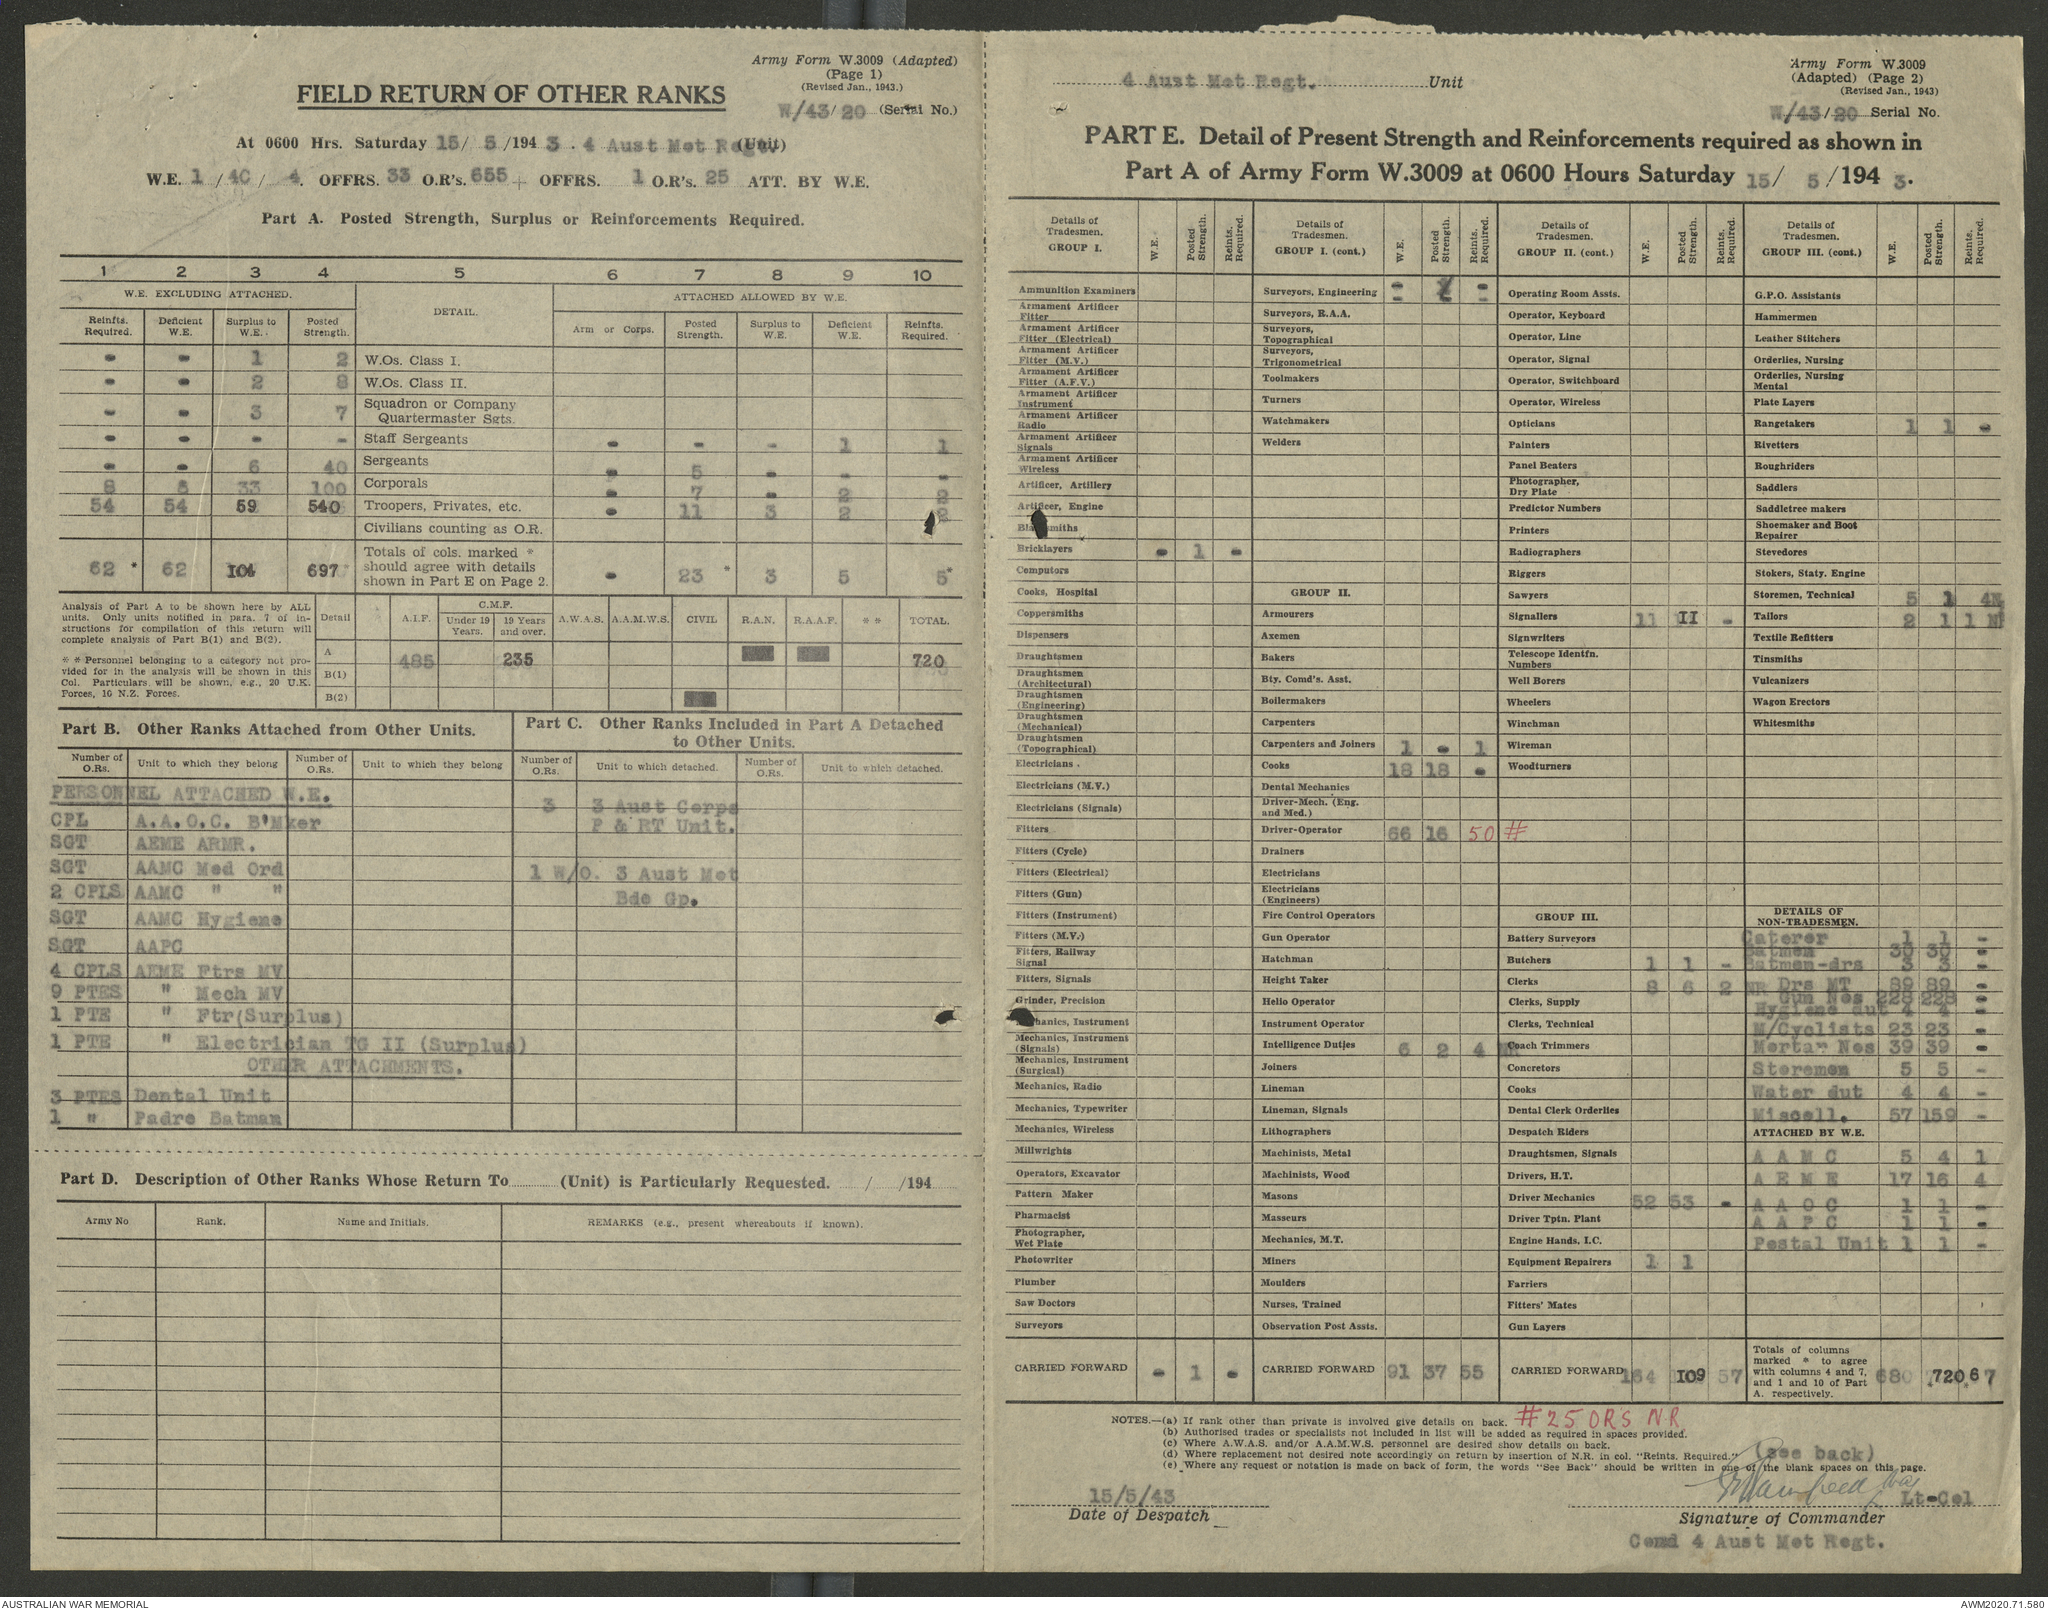 Army Form W.3009 (Adapted)
(Page 1)
(Revised Jan., 1943.)
FIELD RETURN OF OTHER RANKS
W/43/20 (Serial No.)
At 0600 Hrs. Saturday 15/ 5/194 3. 4 Aust Met Regt. (Unit)
W.E. 1 / 40 / 4. OFFRS. 33 O.R's. 655 + OFFRS. 1 O.R's. 25 ATT. BY W.E.
Part A. Posted Strength, Surplus or Reinforcements Required.
1 2 3 4 5 6 7 8 9 10
W.E. EXCLUDING ATTACHED. DETAIL. ATTACHED ALLOWED BY W.E.
Reinfts. Required. Deficient W.E. Surplus to W.E. Posted Strength. Arm or Corps. Posted Strength. Surplus to W.E. Deficient W.E. Reinfts. Required.
- - 1 2 W.Os. Class I.
- - 2 8 W.Os. Class II.
- - 3 7 Squadron or Company Quartermaster Sgts.
- - - - Staff Sergeants - - - 1 1
- - 6 40 Sergeants - 5 - - -
8 8 33 100 Corporals - 7 - 2 2
54 54 59 540 Troopers, Privates, etc. - 11 3 2 2
Civilians counting as O.R.
62 * 62 104 697 * Totals of cols. marked * should agree with details shown in Part E on Page 2. - 23 * 3 5 5*
Analysis of Part A to be shown here by ALL units. Only units notified in para. 7 of instructions for compilation of this return will complete analysis of Part B(1) and B(2).
* * Personnel belonging to a category not provided for in the analysis will be shown in this Col. Particulars will be shown, e.g., 20 U.K. Forces, 10 N.Z. Forces.
Detail A.I.F. C.M.F. Under 19 Years. 19 Years and over. A.W.A.S. A.A.M.W.S. CIVIL R.A.N. R.A.A.F. * * TOTAL.
A 485 235 720
B(1)
B(2)
Part B. Other Ranks Attached from Other Units.
Number of O.Rs. Unit to which they belong Number of O.Rs. Unit to which they belong
PERSONNEL ATTACHED W.E.
CPL A.A.O.C. B'Mker
SGT AEME ARMR.
SGT AAMC Med Ord
2 CPLS AAMC " "
SGT AAMC Hygiene
SGT AAPC
4 CPLS AEME Ftrs MV
9 PTES " Mech MV
1 PTE " Ftr(Surplus)
1 PTE " Electrician TG II (Surplus)
OTHER ATTACHMENTS.
3 PTES Dental Unit
1 " Padre Batman
Part C. Other Ranks Included in Part A Detached to Other Units.
Number of O.Rs. Unit to which detached. Number of O.Rs. Unit to which detached.
3 3 Aust Corps
P & RT Unit.
1 W/O. 3 Aust Met
Bde Gp.
Part D. Description of Other Ranks Whose Return To (Unit) is Particularly Requested. / /194
Army No Rank. Name and Initials. REMARKS (e.g., present whereabouts if known).
4 Aust Met Regt. Unit
Army Form W.3009
(Adapted) (Page 2)
(Revised Jan., 1943)
W/43/20 Serial No.
PART E. Detail of Present Strength and Reinforcements required as shown in
Part A of Army Form W.3009 at 0600 Hours Saturday 15/ 5/194 3.
Details of Tradesmen. GROUP I. W.E. Posted Strength. Reints. Required.
Ammunition Examiners
Armament Artificer Fitter
Armament Artificer Fitter (Electrical)
Armament Artificer Fitter (M.V.)
Armament Artificer Fitter (A.F.V.)
Armament Artificer Instrument
Armament Artificer Radio
Armament Artificer Signals
Armament Artificer Wireless
Artificer, Artillery
Artificer, Engine
Blacksmiths
Bricklayers - 1 -
Computors
Cooks, Hospital
Coppersmiths
Dispensers
Draughtsmen
Draughtsmen (Architectural)
Draughtsmen (Engineering)
Draughtsmen (Mechanical)
Draughtsmen (Topographical)
Electricians .
Electricians (M.V.)
Electricians (Signals)
Fitters
Fitters (Cycle)
Fitters (Electrical)
Fitters (Gun)
Fitters (Instrument)
Fitters (M.V.)
Fitters, Railway Signal
Fitters, Signals
Grinder, Precision
Mechanics, Instrument
Mechanics, Instrument (Signals)
Mechanics, Instrument (Surgical)
Mechanics, Radio
Mechanics, Typewriter
Mechanics, Wireless
Millwrights
Operators, Excavator
Pattern Maker
Pharmacist
Photographer, Wet Plate
Photowriter
Plumber
Saw Doctors
Surveyors
CARRIED FORWARD - 1 -
Details of Tradesmen. GROUP I. (cont.) W.E. Posted Strength. Reints. Required.
Surveyors, Engineering
Surveyors, R.A.A.
Surveyors, Topographical
Surveyors, Trigonometrical
Toolmakers
Turners
Watchmakers
Welders
GROUP II.
Armourers
Axemen
Bakers
Bty. Comd's. Asst.
Boilermakers
Carpenters
Carpenters and Joiners 1 - 1
Cooks 18 18 -
Dental Mechanics
Driver-Mech. (Eng. and Med.)
Driver-Operator 66 16 50 #
Drainers
Electricians
Electricians (Engineers)
Fire Control Operators
Gun Operator
Hatchman
Height Taker
Helio Operator
Instrument Operator
Intelligence Duties 6 2 4 NR
Joiners
Lineman
Lineman, Signals
Lithographers
Machinists, Metal
Machinists, Wood
Masons
Masseurs
Mechanics, M.T.
Miners
Moulders
Nurses, Trained
Observation Post Assts.
CARRIED FORWARD 91 37 55
Details of Tradesmen. GROUP II. (cont.) W.E. Posted Strength. Reints. Required.
Operating Room Assts.
Operator, Keyboard
Operator, Line
Operator, Signal
Operator, Switchboard
Operator, Wireless
Opticians
Painters
Panel Beaters
Photographer, Dry Plate
Predictor Numbers
Printers
Radiographers
Riggers
Sawyers
Signallers 11 II -
Signwriters
Telescope Identfn. Numbers
Well Borers
Wheelers
Winchman
Wireman
Woodturners
GROUP III.
Battery Surveyors
Butchers 1 1 -
Clerks 8 6 2 NR
Clerks, Supply
Clerks, Technical
Coach Trimmers
Concretors
Cooks
Dental Clerk Orderlies
Despatch Riders
Draughtsmen, Signals
Drivers, H.T.
Driver Mechanics 52 53 -
Driver Tptn. Plant
Engine Hands, I.C.
Equipment Repairers 1 1
Farriers
Fitters' Mates
Gun Layers
CARRIED FORWARD 164 109 57
Details of Tradesmen. GROUP III. (cont.) W.E. Posted Strength. Reints Required.
G.P.O. Assistants
Hammermen
Leather Stitchers
Orderlies, Nursing
Orderlies, Nursing Mental
Plate Layers
Rangetakers 1 1 -
Rivetters
Roughriders
Saddlers
Saddletree makers
Shoemaker and Boot Repairer
Stevedores
Stokers, Staty. Engine
Storemen, Technical 5 1 4N
Tailors 2 1 1 N
Textile Refitters
Tinsmiths
Vulcanizers
Wagon Erectors
Whitesmiths
DETAILS OF NON-TRADESMEN.
Caterer 1 1 -
Batmen 30 30 -
Batmen-drs 3 3 -
Drs MT 89 89 -
Gun Nos 228 228 -
Hygiene dut 4 4 -
M/Cyclists 23 23 -
Mortar Nos 39 39 -
Storemen 5 5 -
Water dut 4 4 -
Miscell. 57 159 -
ATTACHED BY W.E.
A A M C 5 4 1
A E M E 17 16 4
A A O C 1 1 -
A A P C 1 1 -
Postal Unit 1 1 -
Totals of columns marked * to agree with columns 4 and 7, and 1 and 10 of Part A. respectively. 680 720 67
NOTES.—(a) If rank other than private is involved give details on back. #25 ORS NR
(b) Authorised trades or specialists not included in list will be added as required in spaces provided.
(c) Where A.W.A.S. and/or A.A.M.W.S. personnel are desired show details on back.
(d) Where replacement not desired note accordingly on return by insertion of N.R. in col. "Reints. Required." (see back)
(e) Where any request or notation is made on back of form, the words "See Back" should be written in one of the blank spaces on this page.
15/5/43
Date of Despatch
Lt-Col
Signature of Commander
Comd 4 Aust Met Regt.
AUSTRALIAN WAR MEMORIAL
AWM2020.71.580